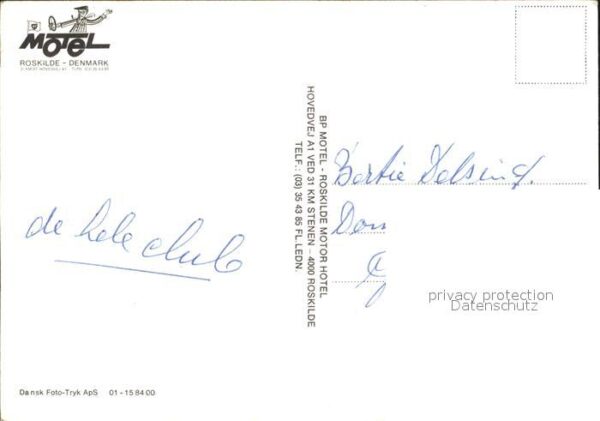 MOTEL
ROSKILDE - DENMARK
de hele club
BP MOTEL - ROSKILDE MOTOR HOTEL
HOVEDVEJ A1 VED 31 KM STENEN - 4000 ROSKILDE
TELF.: (03) 35 43 85 FL. LEDN.
Bertie Delsing.
privacy protection
Datenschutz
Dansk Foto-Tryk ApS 01-15 84 00